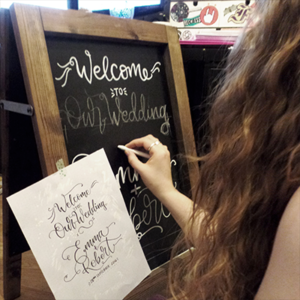 Welcome
TO
Our Wedding
Emma
Robert
Welcome
TO
Our Wedding
Emma
&
Robert